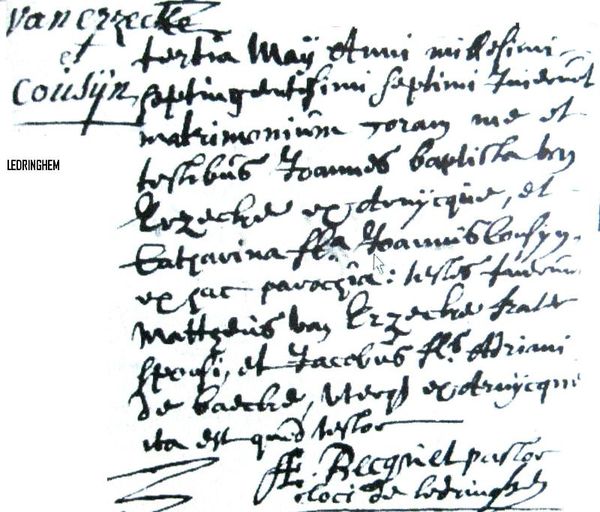 van Erzecke
et
Cousÿn
LEDRINGHEM
tertia Maÿ Anni millesimi
septingentesimi septimi Inierunt
matrimonium coram me et
testibus Joannes baptista van
Erzecke ex Arnÿcque, et
Catharina fl.a Joannis Cousyn
ex hac parochia: testes fuerunt
Mattheus van Erzecke frater
sponsi, et Jacobus fl.s Adriani
de baecke, uterq ex Arnÿcque
ita est quod testor
F. Becquet pastor
loci de ledringhem